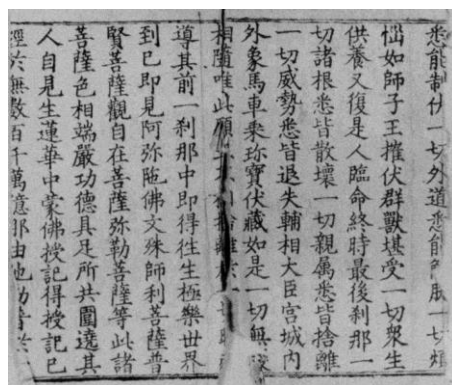 悉能制伏一切外道悉能脫一切煩
惱如師子王摧伏群獸堪受一切衆生
供養又復是人臨命終時最後刹那一
切諸根悉皆散壞一切親属悉皆捨離
一切威勢悉皆退失輔相大臣宮城內
外象馬車乘珍寶伏藏如是一切無
相隨唯此願
導其前一刹那中即得徃生極樂世界
到已即見阿弥陁佛文殊師利菩薩普
賢菩薩觀自在菩薩弥勒菩薩等此諸
菩薩色相端嚴功德具足所共圍遶其
人自見生蓮華中蒙佛授記得授記已
經於無數百千萬億那由他劫普於